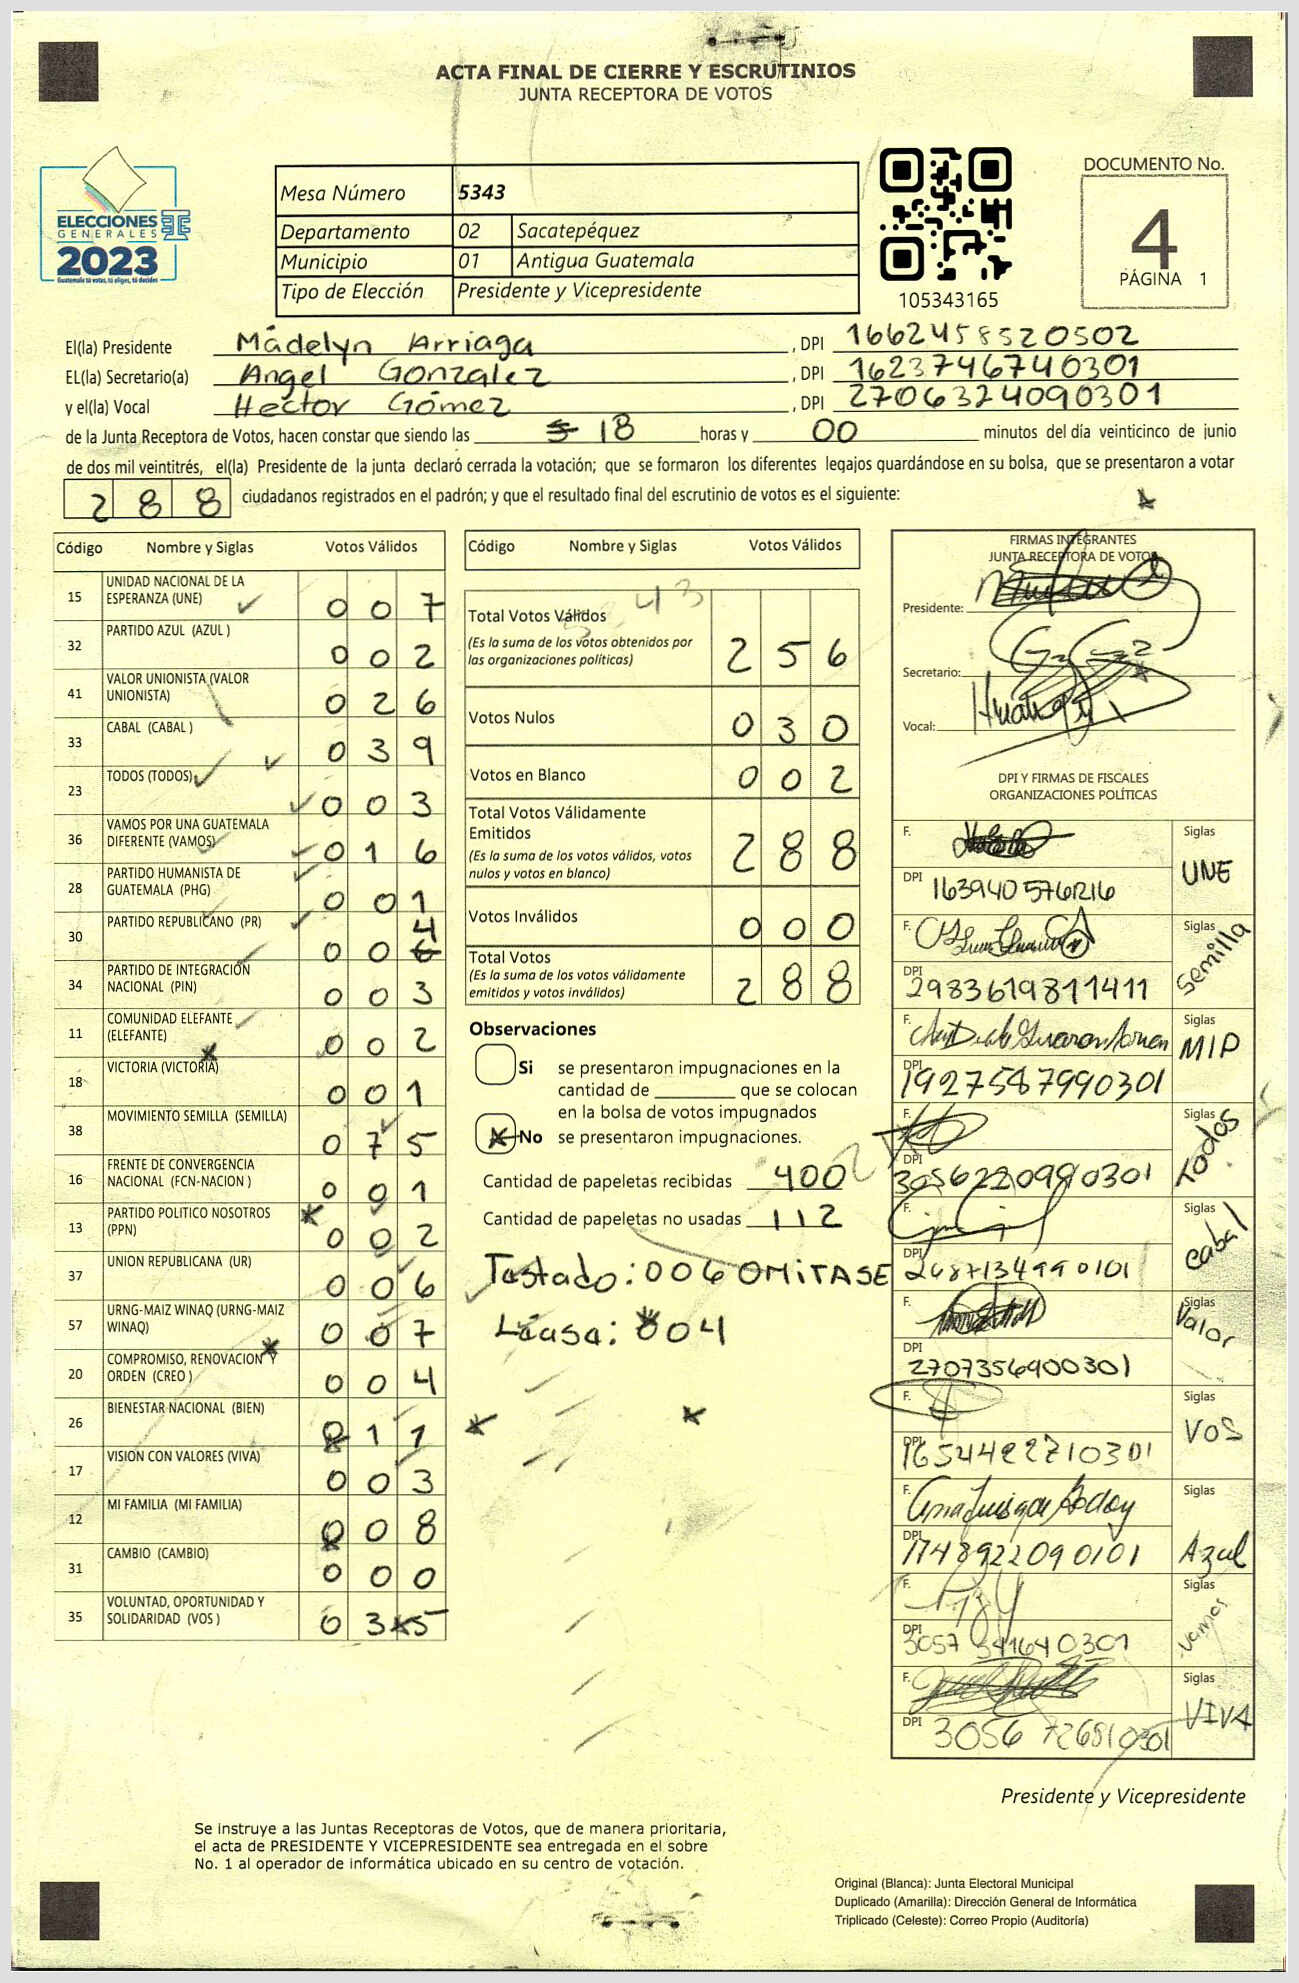 ACTA FINAL DE CIERRE Y ESCRUTINIOS
JUNTA RECEPTORA DE VOTOS
ELECCIONES
GENERALES
2023
Guatemala tú votas, tú eliges, tú decides
Mesa Número 5343
Departamento 02 Sacatepéquez
Municipio 01 Antigua Guatemala
Tipo de Elección Presidente y Vicepresidente
105343165
DOCUMENTO No.
4
PÁGINA 1
El(la) Presidente Madelyn Arriaga , DPI 1662458520502
EL(la) Secretario(a) Angel Gonzalez , DPI 1623746740301
y el(la) Vocal Hector Gómez , DPI 2706324090301
de la Junta Receptora de Votos, hacen constar que siendo las 18 horas y 00 minutos del día veinticinco de junio
de dos mil veintitrés, el(la) Presidente de la junta declaró cerrada la votación; que se formaron los diferentes legajos guardándose en su bolsa, que se presentaron a votar
288 ciudadanos registrados en el padrón; y que el resultado final del escrutinio de votos es el siguiente:
Código Nombre y Siglas Votos Válidos
15 UNIDAD NACIONAL DE LA ESPERANZA (UNE) 007
32 PARTIDO AZUL (AZUL ) 002
41 VALOR UNIONISTA (VALOR UNIONISTA) 026
33 CABAL (CABAL ) 039
23 TODOS (TODOS) 003
36 VAMOS POR UNA GUATEMALA DIFERENTE (VAMOS) 016
28 PARTIDO HUMANISTA DE GUATEMALA (PHG) 001
30 PARTIDO REPUBLICANO (PR) 004
34 PARTIDO DE INTEGRACIÓN NACIONAL (PIN) 003
11 COMUNIDAD ELEFANTE (ELEFANTE) 002
18 VICTORIA (VICTORIA) 001
38 MOVIMIENTO SEMILLA (SEMILLA) 075
16 FRENTE DE CONVERGENCIA NACIONAL (FCN-NACION ) 001
13 PARTIDO POLITICO NOSOTROS (PPN) 002
37 UNION REPUBLICANA (UR) 006
57 URNG-MAIZ WINAQ (URNG-MAIZ WINAQ) 007
20 COMPROMISO, RENOVACION Y ORDEN (CREO ) 004
26 BIENESTAR NACIONAL (BIEN) 011
17 VISION CON VALORES (VIVA) 003
12 MI FAMILIA (MI FAMILIA) 008
31 CAMBIO (CAMBIO) 000
35 VOLUNTAD, OPORTUNIDAD Y SOLIDARIDAD (VOS ) 035
Código Nombre y Siglas Votos Válidos
Total Votos Válidos 256
(Es la suma de los votos obtenidos por
las organizaciones políticas)
Votos Nulos 030
Votos en Blanco 002
Total Votos Válidamente
Emitidos 288
(Es la suma de los votos válidos, votos
nulos y votos en blanco)
Votos Inválidos 000
Total Votos 288
(Es la suma de los votos válidamente
emitidos y votos inválidos)
Observaciones
Si se presentaron impugnaciones en la
cantidad de ________ que se colocan
en la bolsa de votos impugnados
No se presentaron impugnaciones.
Cantidad de papeletas recibidas 400
Cantidad de papeletas no usadas 112
Testado: 006 OMITASE
Léase: 004
FIRMAS INTEGRANTES
JUNTA RECEPTORA DE VOTOS
Presidente:
Secretario:
Vocal:
DPI Y FIRMAS DE FISCALES
ORGANIZACIONES POLÍTICAS
F. Siglas UNE
DPI
F. Siglas Semilla
DPI 2983619811411
F. Siglas MIP
DPI 1927587990301
F. Siglas todos
DPI 3056220990301
F. Siglas Cabal
DPI 2687134990101
F. Siglas Valor
DPI 2707356900301
F. Siglas VOS
DPI 1654422710301
F. Siglas Azul
DPI 1748922090101
F. Siglas Vamos
DPI 3057341640301
F. Siglas VIVA
DPI 3056726810301
Presidente y Vicepresidente
Se instruye a las Juntas Receptoras de Votos, que de manera prioritaria,
el acta de PRESIDENTE Y VICEPRESIDENTE sea entregada en el sobre
No. 1 al operador de informática ubicado en su centro de votación.
Original (Blanca): Junta Electoral Municipal
Duplicado (Amarilla): Dirección General de Informática
Triplicado (Celeste): Correo Propio (Auditoría)